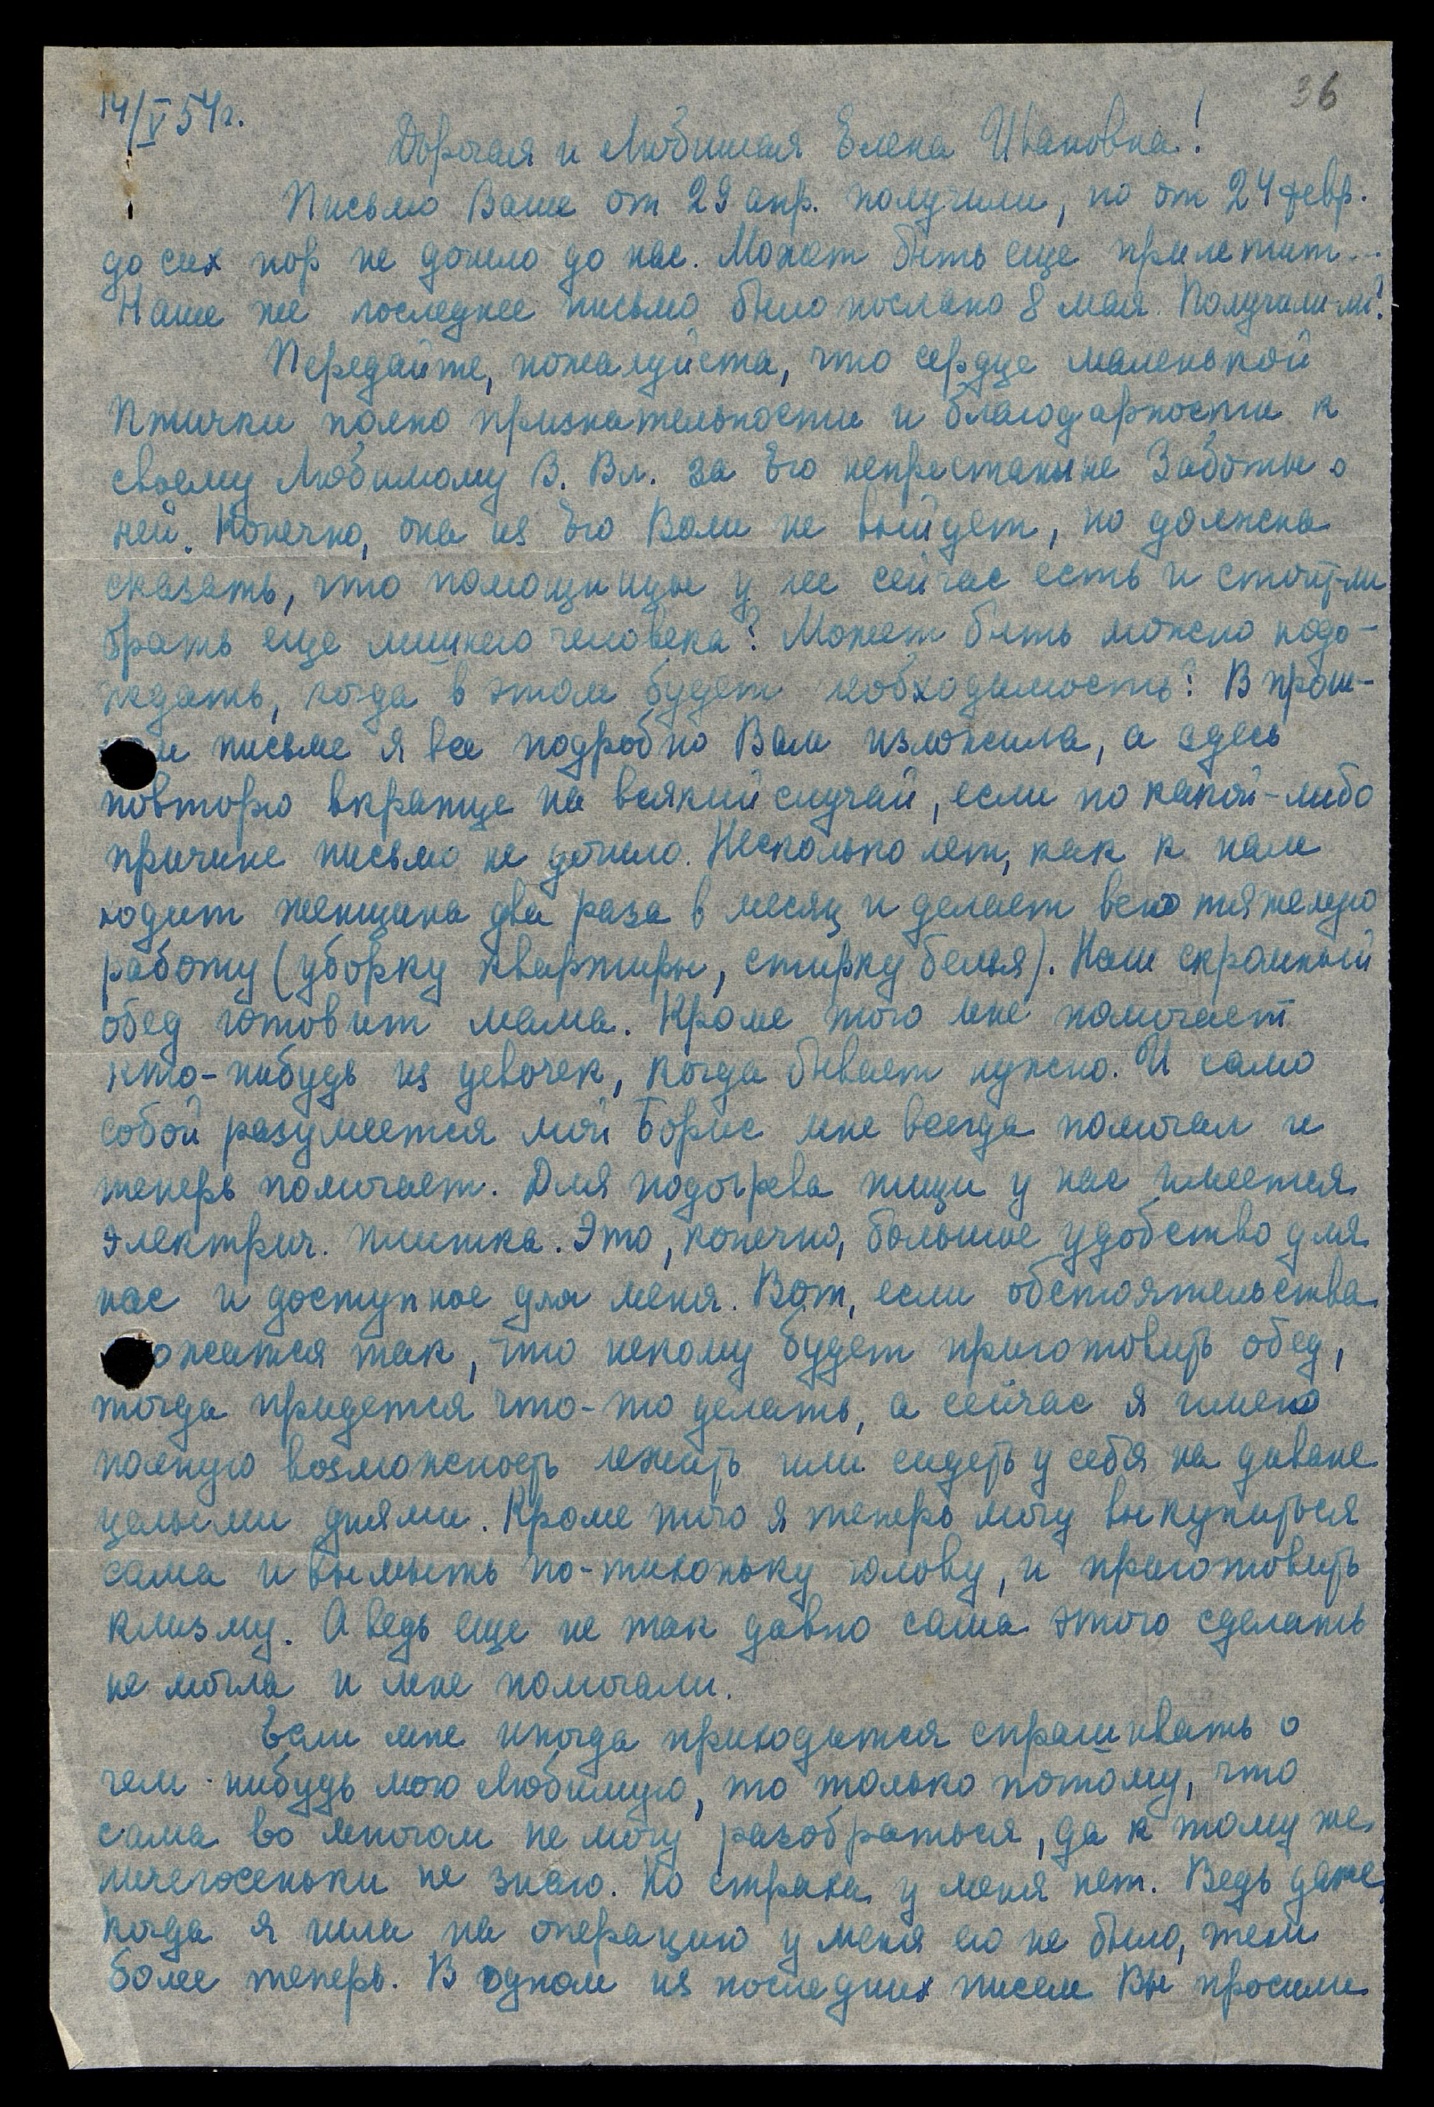 14/V 54г.
36
Дорогая и Любимая Елена Ивановна!
Письмо Ваше от 29 апр. получили, но от 24 февр.
до сих пор не дошло до нас. Может быть еще прилетит...
Наше же последнее письмо было послано 8 мая. Получили ли?
Передайте, пожалуйста, что сердце маленькой
Птички полно признательности и благодарности к
своему Любимому В. Вл. за Его непрестанные Заботы о
ней. Конечно, она из Его Воли не выйдет, но должна
сказать, что помощницы у нее сейчас есть и стоит-ли
брать еще лишнего человека? Может быть можно подо-
ждать, когда в этом будет необходимость? В прош-
м письме я все подробно Вам изложила, а здесь
повторю вкратце на всякий случай, если по какой-либо
причине письмо не дошло. Несколько лет, как к нам
ходит женщина два раза в месяц и делает всю тяжелую
работу (уборку квартиры, стирку белья). Наш скромный
обед готовит мама. Кроме того мне помогает
кто-нибудь из девочек, когда бывает нужно. И само
собой разумеется мой Борис мне всегда помогал и
теперь помогает. Для подогрева пищи у нас имеется
электрич. плитка. Это, конечно, большое удобство для
нас и доступное для меня. Вот, если обстоятельства
ожатся так, что некому будет приготовить обед,
тогда придется что-то делать, а сейчас я имею
полную возможность лежать или сидеть у себя на диване
целыми днями. Кроме того я теперь могу выкупаться
сама и вымыть по-тихоньку голову, и приготовить
клизму. А ведь еще не так давно сама этого сделать
не могла и мне помогали.
Если мне иногда приходится спрашивать о
чем-нибудь мою Любимую, то только потому, что
сама во многом не могу разобраться, да к тому же
ничегосеньки не знаю. Но страха у меня нет. Ведь даже
когда я шла на операцию у меня его не было, тем
более теперь. В одном из последних писем Вы просили